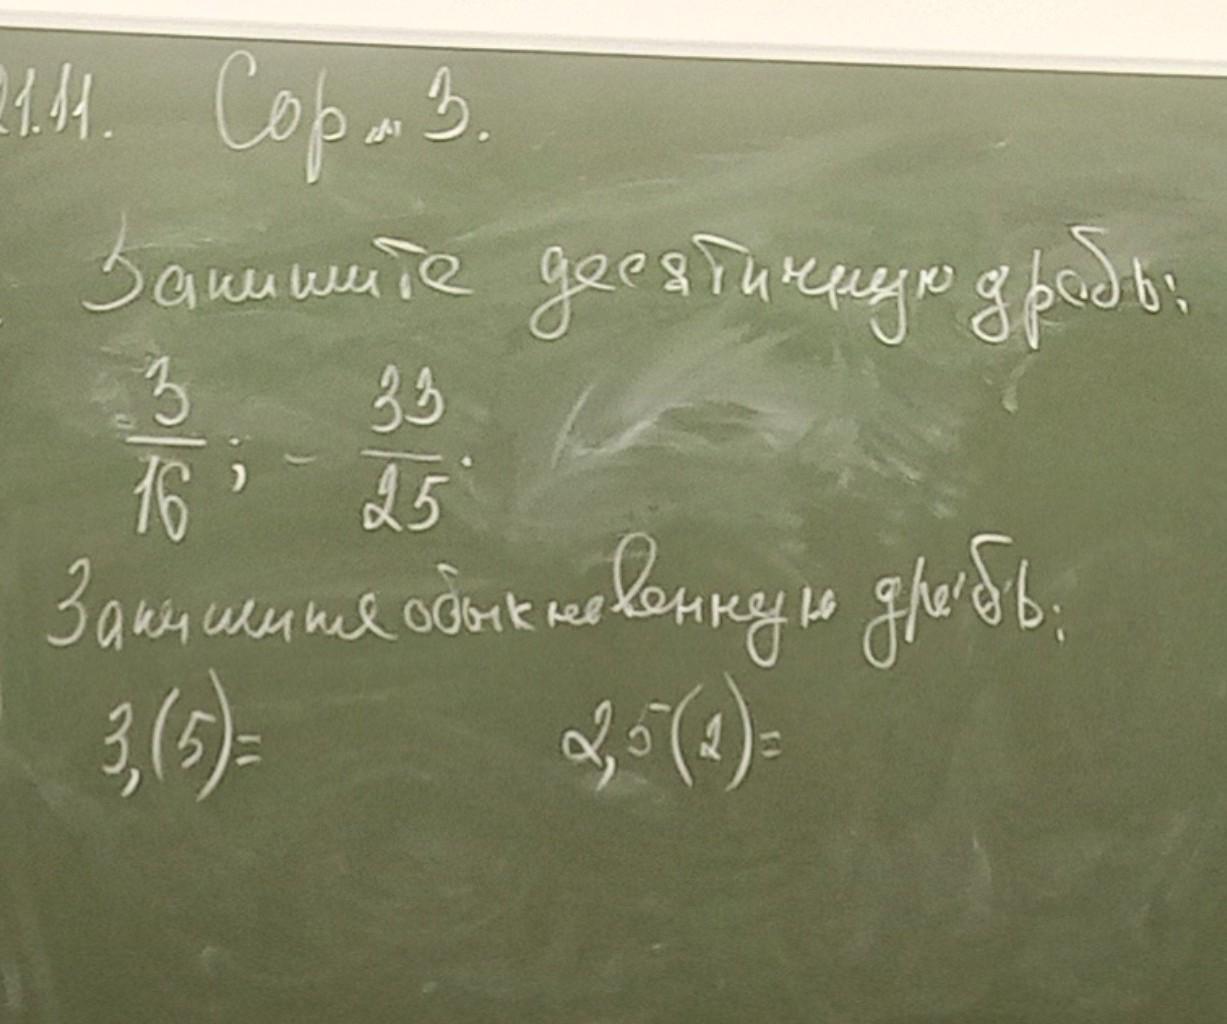 21.11. Сор №3.
Запишите десятичную дробь:
3/16 ; - 33/25.
Запишите обыкновенную дробь:
3,(5)= 2,5(2)=